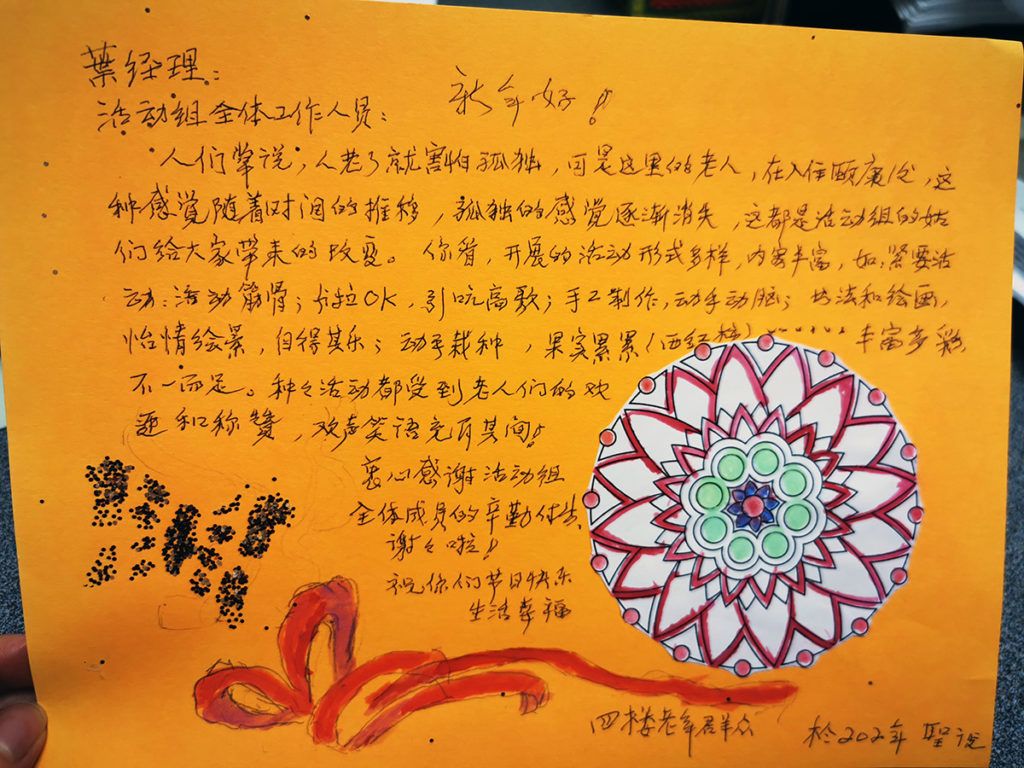 葉经理:
新年好!
活动组全体工作人员:
人们常说,人老了就害怕孤独,可是这里的老人,在入住颐康后,这
种感觉随着时间的推移,孤独的感觉逐渐消失,这都是活动组的姑
们给大家带来的改变。你看,开展的活动形式多样,内容丰富,如:需要活
动:活动筋骨;卡拉OK,引吭高歌;手工制作,动手动脑;书法和绘画,
怡情绘景,自得其乐;动手栽种,果实累累(西红柿)……丰富多彩,
不一而足。种々活动都受到老人们的欢
迎和称赞,欢声笑语充斥其间!
衷心感谢活动组
全体成员的辛勤付出
谢々啦!
祝你们节日快乐
生活幸福
四楼老年群众
于202年 聖诞